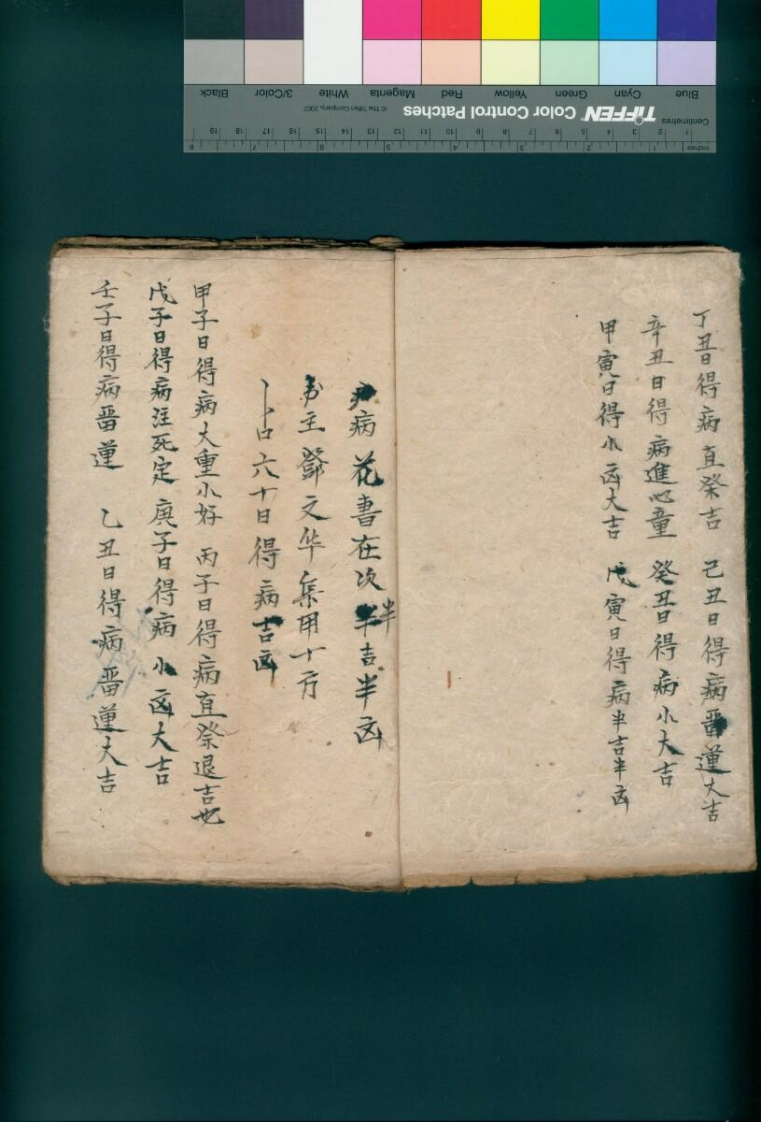 丁丑日得病直祭吉 己丑日得病䓁蓮大吉
辛丑日得病進心童 癸丑日得病小大吉
甲寅日得小凶大吉 戊寅日得病半吉半凶
病花書在次半吉半凶
主鄧文华集用十方
六十日得病吉凶
甲子日得病大重小好 丙子日得病直祭退吉也
戊子日得病注死定 庚子日得病小凶大吉
壬子日得病 蓮 乙丑日得病 蓮大吉
Blue Cyan Green Yellow Red Magenta White 3/Color Black
TIFFEN Color Control Patches
© The Tiffen Company, 2007
Centimetres 1 2 3 4 5 6 7 8 9 10 11 12 13 14 15 16 17 18 19
Inches 1 2 3 4 5 6 7 8